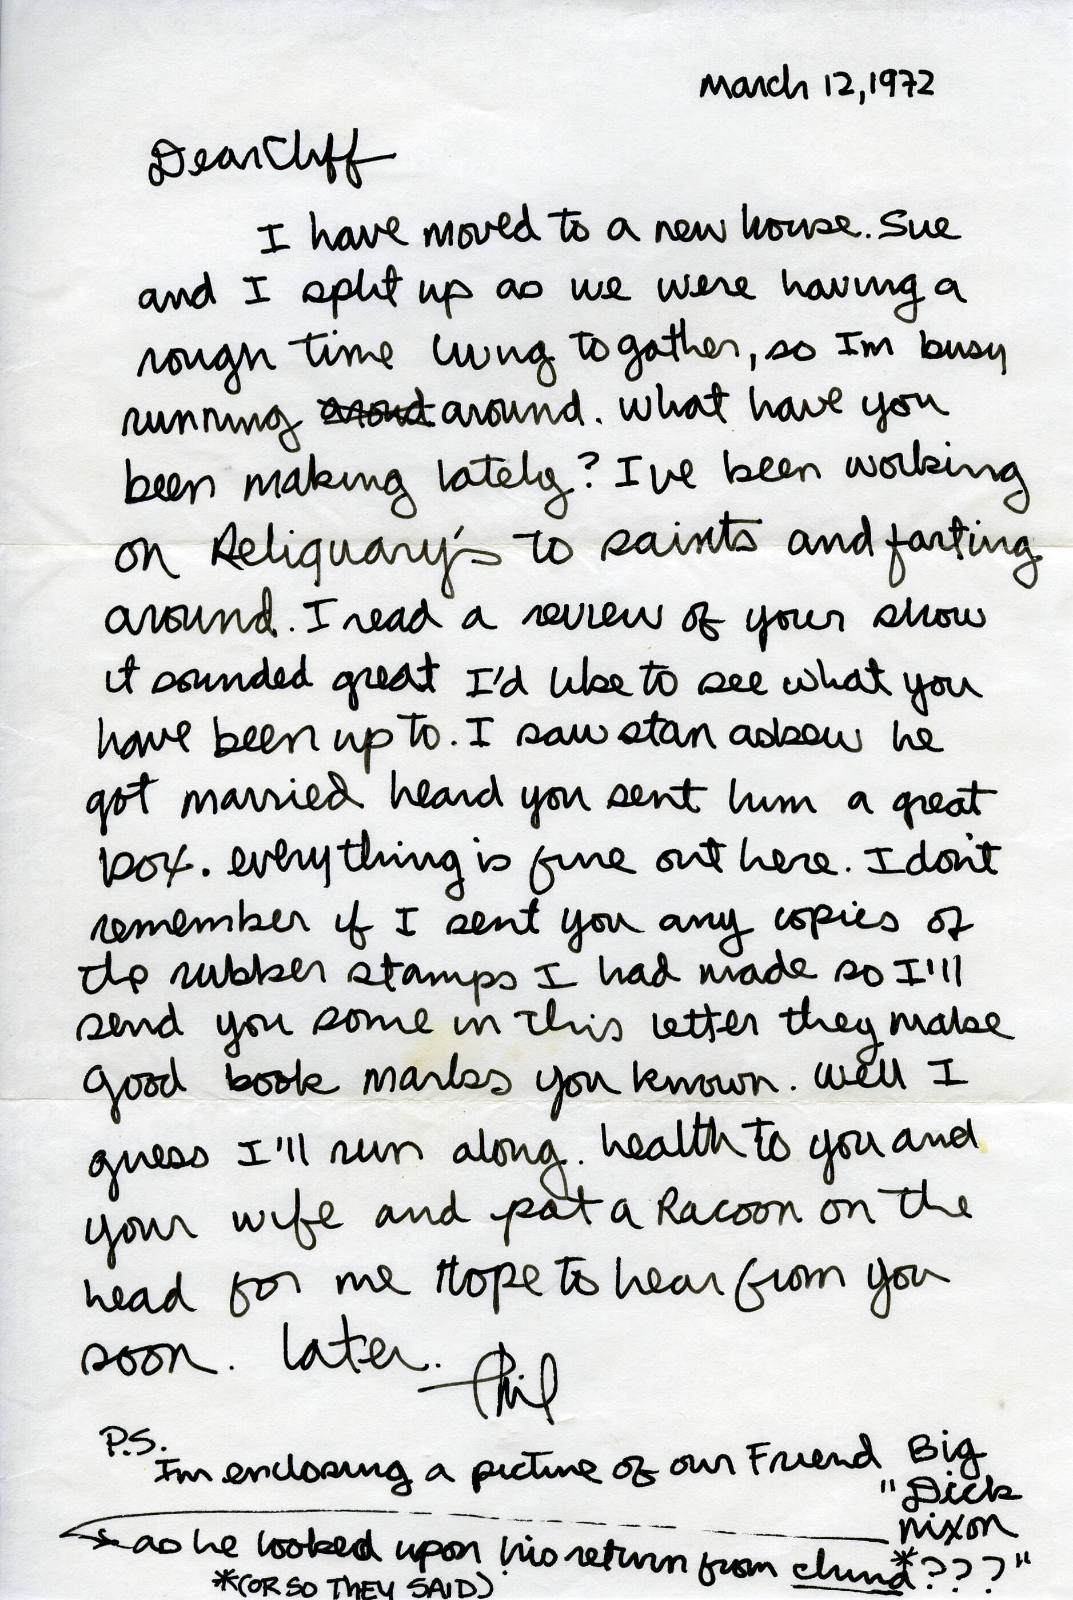 March 12, 1972
Dear Cliff
I have moved to a new house. Sue
and I split up as we were having a
rough time living togather, so Im busy
running around. What have you
been making lately? I've been working
on Reliquary's to saints and farting
around. I read a review of your show
it sounded great I'd like to see what you
have been up to. I saw stan askew he
got married heard you sent him a great
box. everything is fine out here. I don't
remember if I sent you any copies of
the rubber stamps I had made so I'll
send you some in this letter they make
good book marks you known. Well I
guess I'll run along. health to you and
your wife and pat a Racoon on the
head for me Hope to hear from you
soon. later. Phil
P.S.
Im enclosing a picture of our Friend Big
"Dick
nixon
as he looked upon his return from china*???"
*(OR SO THEY SAID)